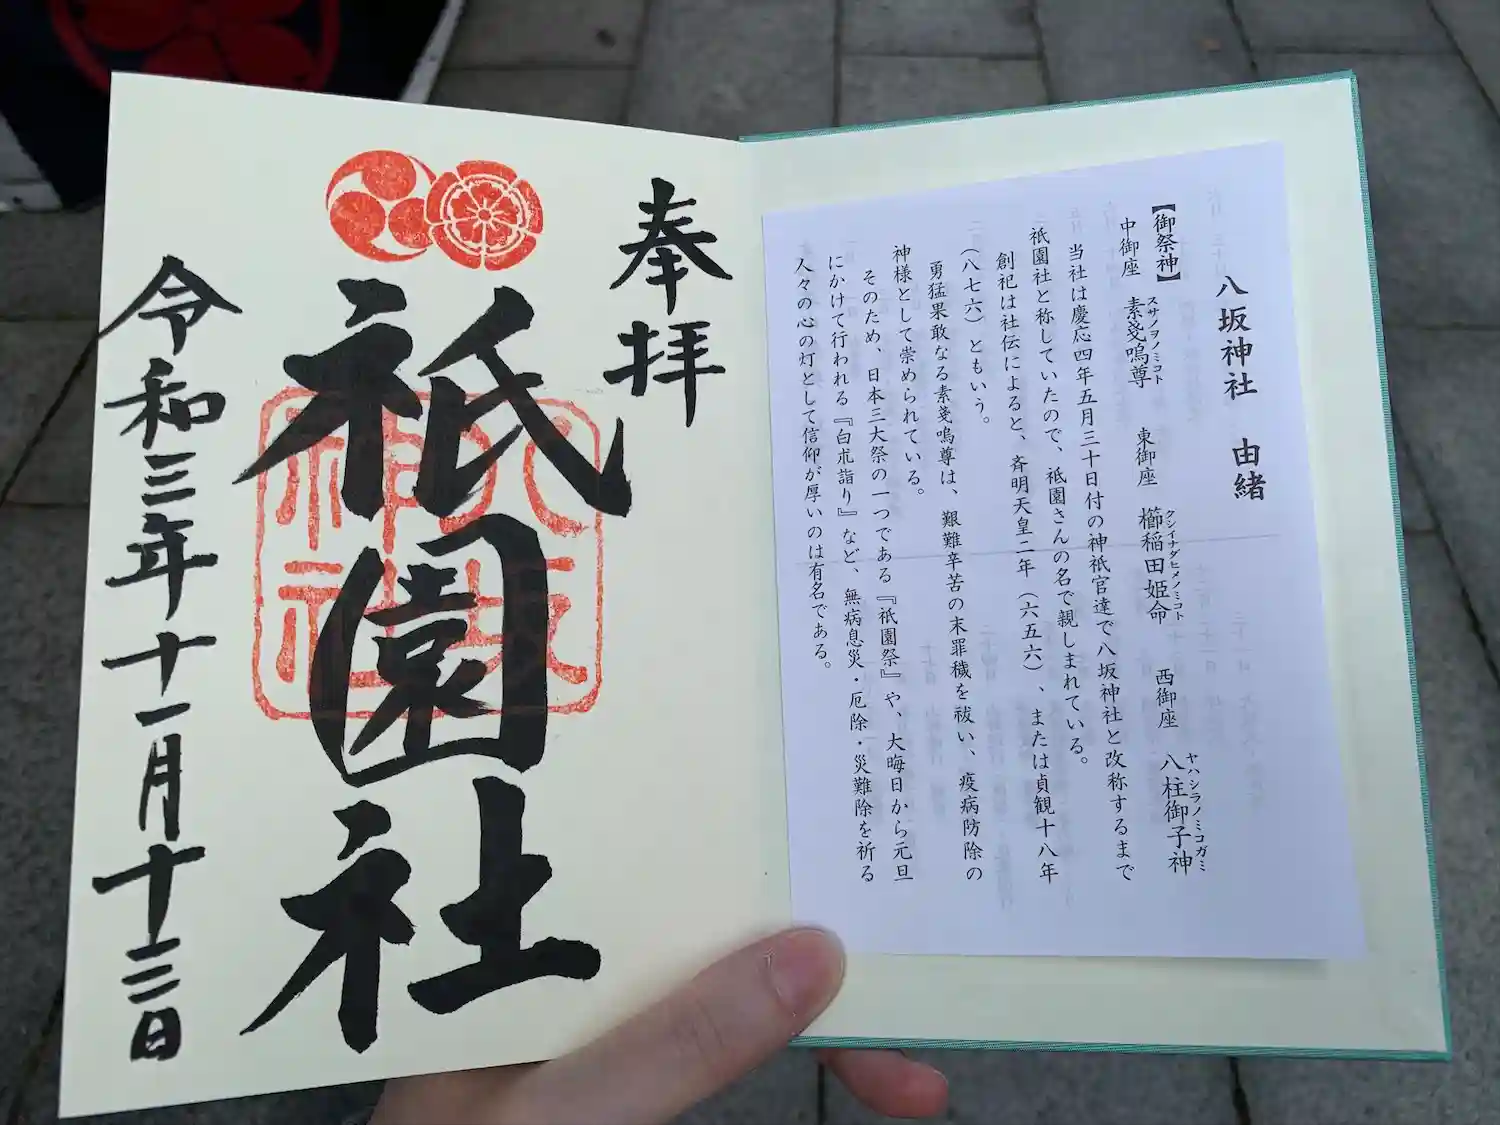 八坂神社　由緒
【御祭神】
中御座　素戔嗚尊　東御座　櫛稲田姫命　西御座　八柱御子神
スサノヲノミコト　クシイナダヒメノミコト　ヤハシラノミコガミ
当社は慶応四年五月三十日付の神祇官達で八坂神社と改称するまで
祇園社と称していたので、祇園さんの名で親しまれている。
創祀は社伝によると、斉明天皇二年（六五六）、または貞観十八年
（八七六）ともいう。
勇猛果敢なる素戔嗚尊は、艱難辛苦の末罪穢を祓い、疫病防除の
神様として崇められている。
そのため、日本三大祭の一つである『祇園祭』や、大晦日から元旦
にかけて行われる『白朮詣り』など、無病息災・厄除・災難除を祈る
人々の心の灯として信仰が厚いのは有名である。
奉拝
祇園社
八坂
神社
令和三年十一月十三日